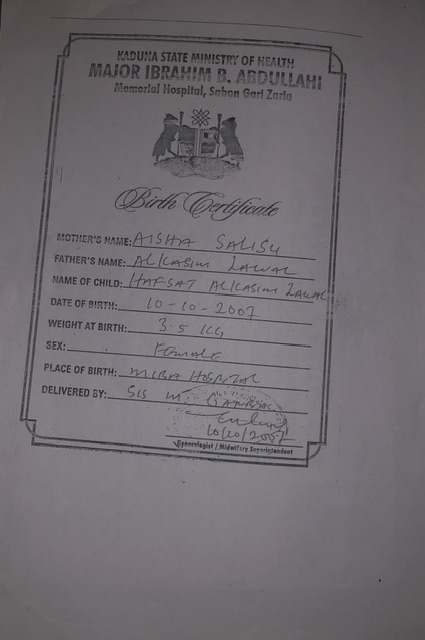 KADUNA STATE MINISTRY OF HEALTH
MAJOR IBRAHIM B. ABDULLAHI
Memorial Hospital, Sabon Gari Zaria
Birth Certificate
MOTHER'S NAME: AISHA SALISU
FATHER'S NAME: ALKASIM LAWAL
NAME OF CHILD: HAFSAT ALKASIM LAWAL
DATE OF BIRTH: 10-10-2007
WEIGHT AT BIRTH: 3.5 KG
SEX: Female
PLACE OF BIRTH: MIBA HOSPITAL
DELIVERED BY: SIS M.
10/10/2007
Gynecologist / Midwifery Superintendent